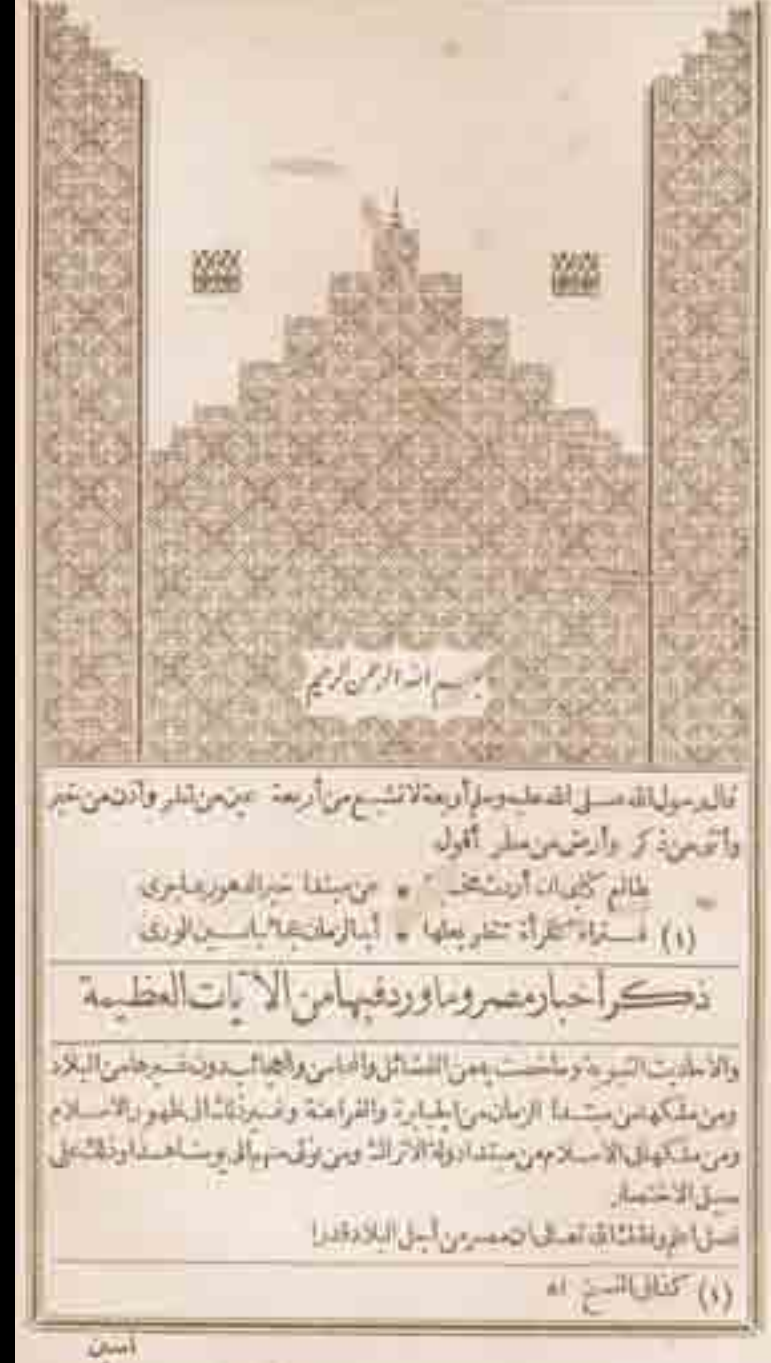 بسم الله الرحمن الرحيم
قال رسول الله صلى الله عليه وسلم أربعة لا تشبع من أربعة عين من نظر وأذن من خبر
وأنثى من ذكر وأرض من مطر أقول
طالع كتابى ان أردت * من مبتدا خبر الدهور وما جرى
(١) كمرآة تنظر بها * أبناء الورى
ذكر أخبار مصر وما ورد فيها من الآيات العظيمة
والأحاديث النبوية وما خصت به من الفضائل والمحاسن والعجائب دون غيرها من البلاد
ومن ملكها من مبتدا الزمان من الجبابرة والفراعنة وغير ذلك الى ظهور الاسلام
ومن ملكها فى الاسلام من مبتدا دولة الاتراك ومن تولى منهم الى يومنا هذا وذلك على
سبيل الاختصار
فصل اعلم وفقك الله تعالى ان مصر من أجل البلاد قدرا
(١) كذا فى النسخ اه